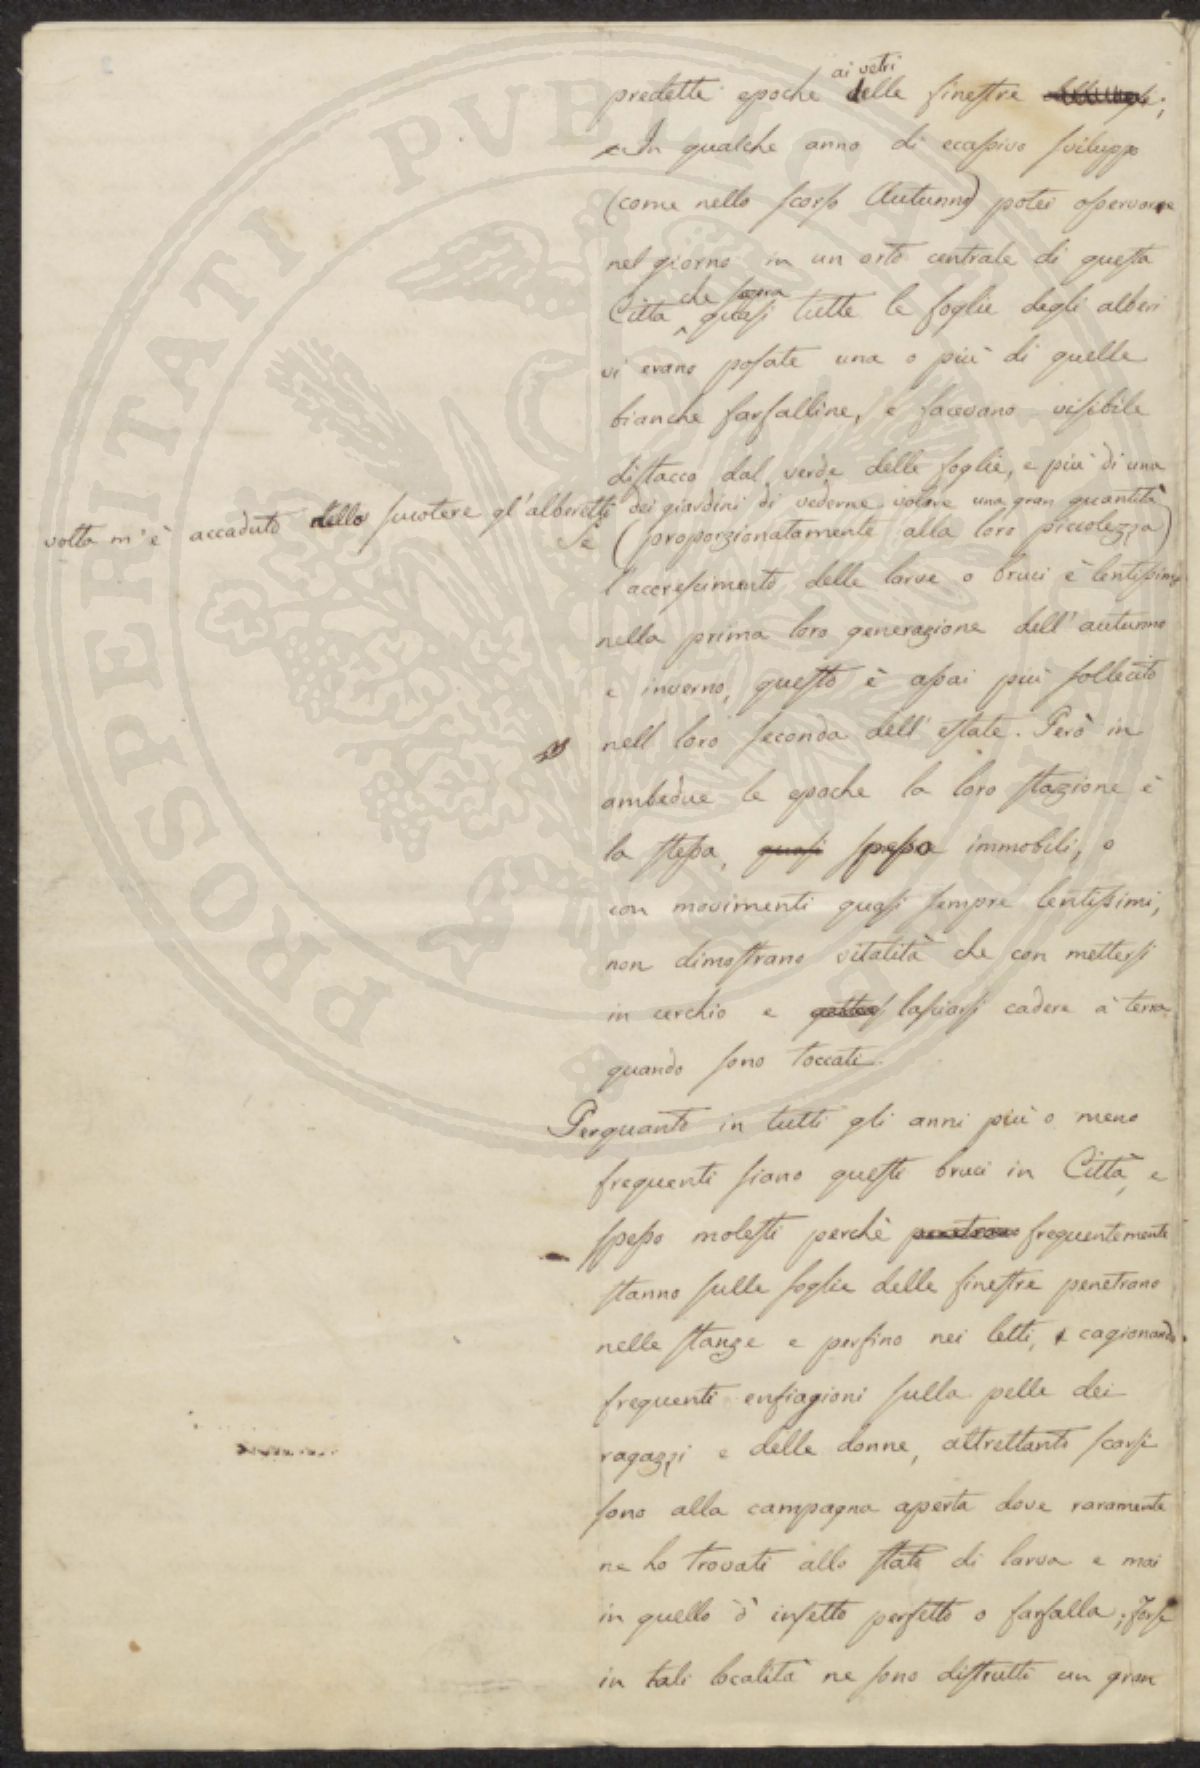 PROSPERITATI PUBLICAE
ai vetri
predette epoche delle finestre
In qualche anno di eccessivo sviluppo
(come nello scorso Autunno) potei osservare
nel giorno in un orto centrale di questa
che sopra
Città quasi tutte le foglie degli alberi
vi erano posate una o più di quelle
bianche farfalline, e facevano visibile
distacco dal verde delle foglie, e più di una
volta m'è accaduto nello scuotere gl'alberetti dei giardini di vederne volare una gran quantità
Se (proporzionatamente alla loro piccolezza)
l'accrescimento delle larve o bruci è lentissimo
nella prima loro generazione dell'autunno
e inverno, questo è assai più sollecito
nell loro seconda dell'estate. Però in
ambedue le epoche la loro stazione è
la stessa, quasi spesso immobili, o
con movimenti quasi sempre lentissimi,
non dimostrano vitalità che con mettersi
in cerchio e lasciarsi cadere a terra
quando sono toccati.
Perquanto in tutti gli anni più o meno
frequenti siano questi bruci in Città, e
spesso molesti perchè penetrano frequentemente
stanno sulle foglie delle finestre penetrano
nelle stanze e persino nei letti, e cagionando
frequenti enfiagioni sulla pelle dei
ragazzi e delle donne, altrettanto scarsi
sono alla campagna aperta dove raramente
ne ho trovati allo stato di larva e mai
in quello d'insetto perfetto o farfalla; forse
in tali località ne sono distrutti un gran